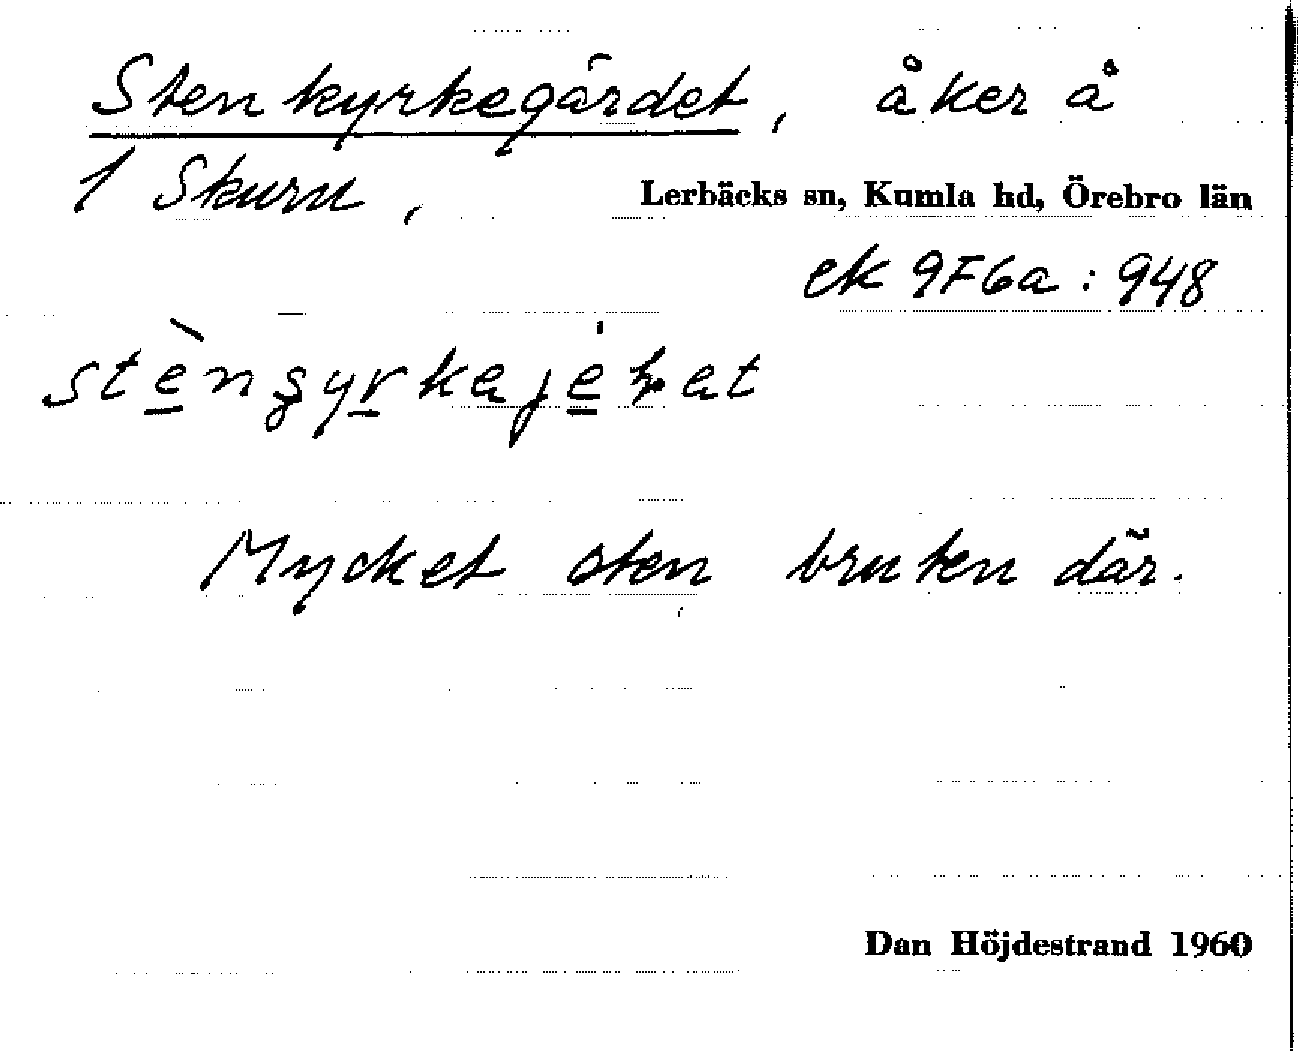 Stenkyrkegärdet, åker å
1 Skuru,
Lerbäcks sn, Kumla hd, Örebro län
ek 9F6a: 948
Mycket sten bruten där.
Dan Höjdestrand 1960